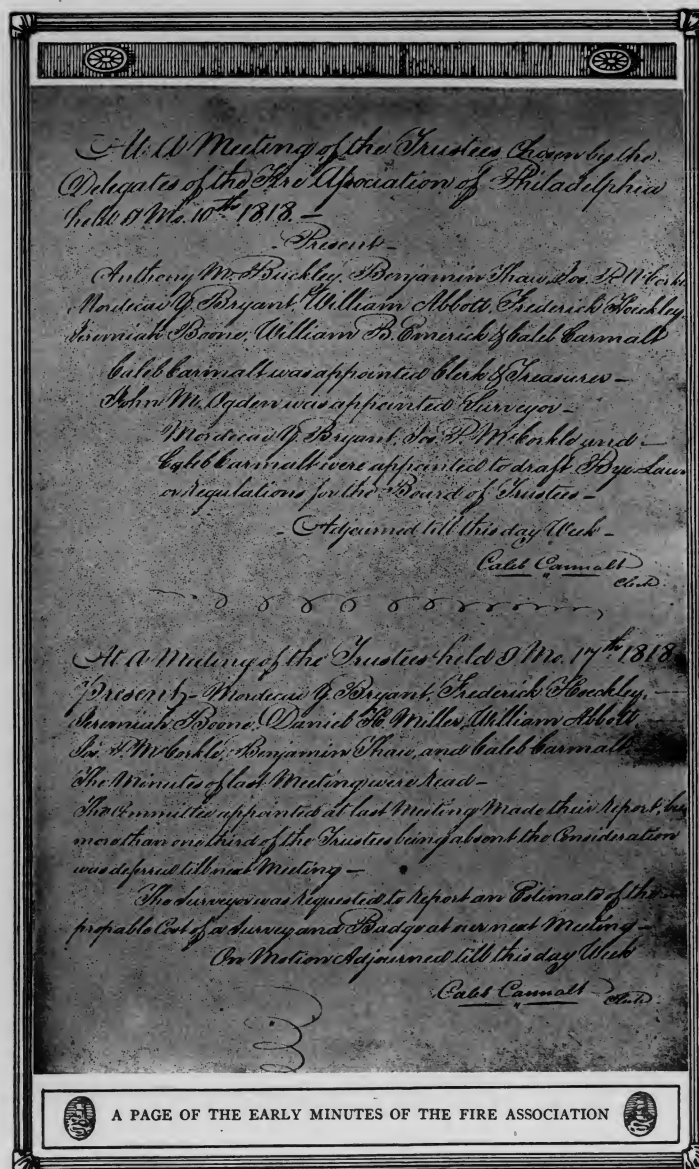 At a Meeting of the Trustees Chosen by the
Delegates of the Fire Association of Philadelphia
held 9 Mo. 10th 1818.—
- Present -
Anthony M. Buckley, Benjamin Thaw, Jos. P. McCorkle
Mordecai Y. Bryant, William Abbott, Frederick Hoeckley,
Jeremiah Boone, William B. Emerick & Caleb Carmalt
Caleb Carmalt was appointed Clerk & Treasurer—
John M. Ogden was appointed Surveyor—
Mordecai Y. Bryant, Jos. P. McCorkle and—
Caleb Carmalt were appointed to draft Bye-Laws
or Regulations for the Board of Trustees—
- Adjourned till this day Week -
Caleb Carmalt
Clerk
At a Meeting of the Trustees held 9 Mo. 17th 1818
present— Mordecai Y. Bryant, Frederick Hoeckley,—
Jeremiah Boone, Daniel H. Miller, William Abbott
Jos. P. McCorkle, Benjamin Thaw, and Caleb Carmalt
The Minutes of last Meeting were Read—
The Committee appointed at last Meeting Made their Report, but
more than one third of the Trustees being absent the Consideration
was deferred till next Meeting—
The Surveyor was requested to Report an Estimate of the—
propable Cost of a Survey and Badge at our next Meeting—
On Motion Adjourned till this day Week
Caleb Carmalt
Clerk
A PAGE OF THE EARLY MINUTES OF THE FIRE ASSOCIATION